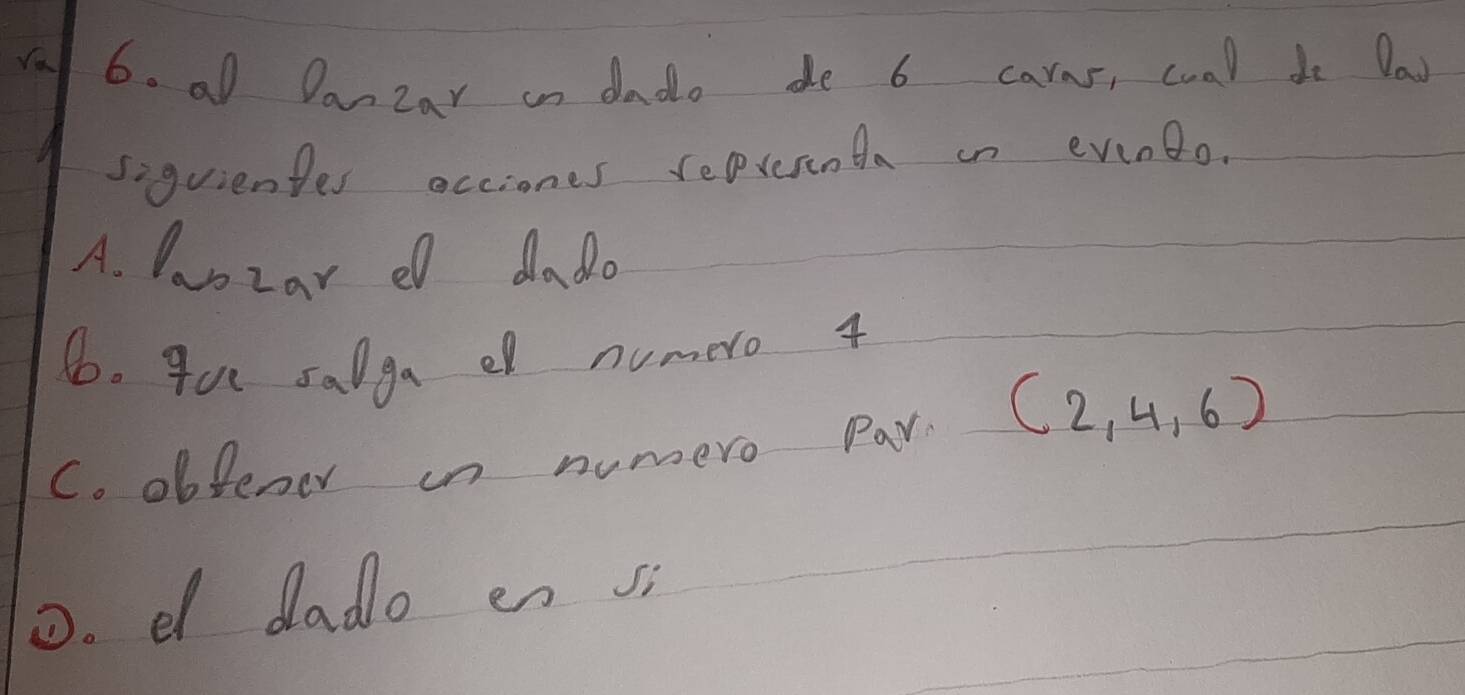 6. al lanzar un dado de 6 caras, cual de las
siguientes acciones representa un evento.
A. lanzar el dado
B. que salga el numero 7
C. obtener un numero par. (2,4,6)
D. el dado en si